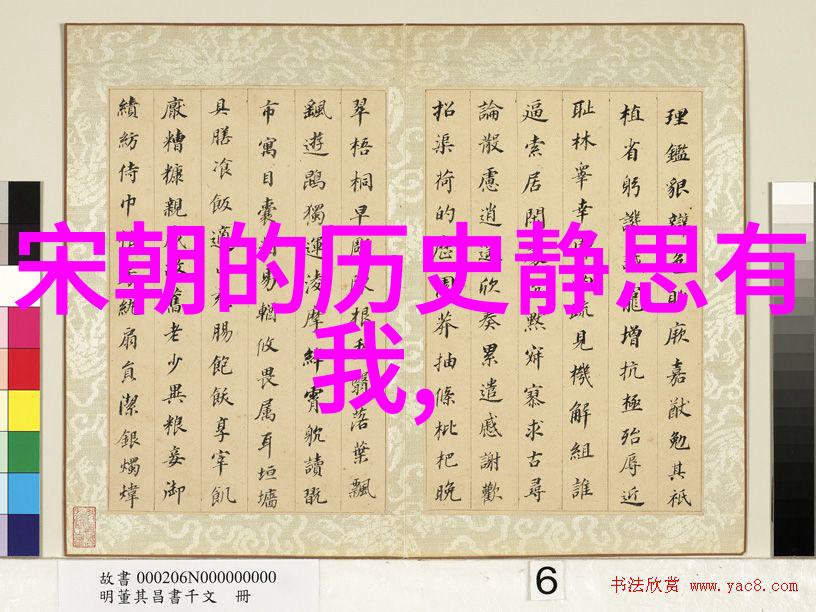 理鑑貌辯色貽厥嘉猷勉其祗
植省躬譏誡寵增抗極殆辱近
恥林睪幸疏見機解組誰
逼索居閑默寂寥求古尋
論散慮逍遙欣奏累遣慼謝歡
招渠荷的歷園莽抽條枇杷晚
翠梧桐早凋根委翳落葉飄
颻遊鵾獨運凌摩絳霄耽讀翫
市寓目囊箱易輶攸畏属耳垣墻
具膳飡飯適口腸飽飫享宰飢
厭糟糠親戚故舊老少異粮妾御
績紡侍巾紈扇員潔銀燭煒
宋朝的历史静思有
我,
故書 000206N000000000
明董其昌書千文 冊
6
书法欣赏 www.yac8.com